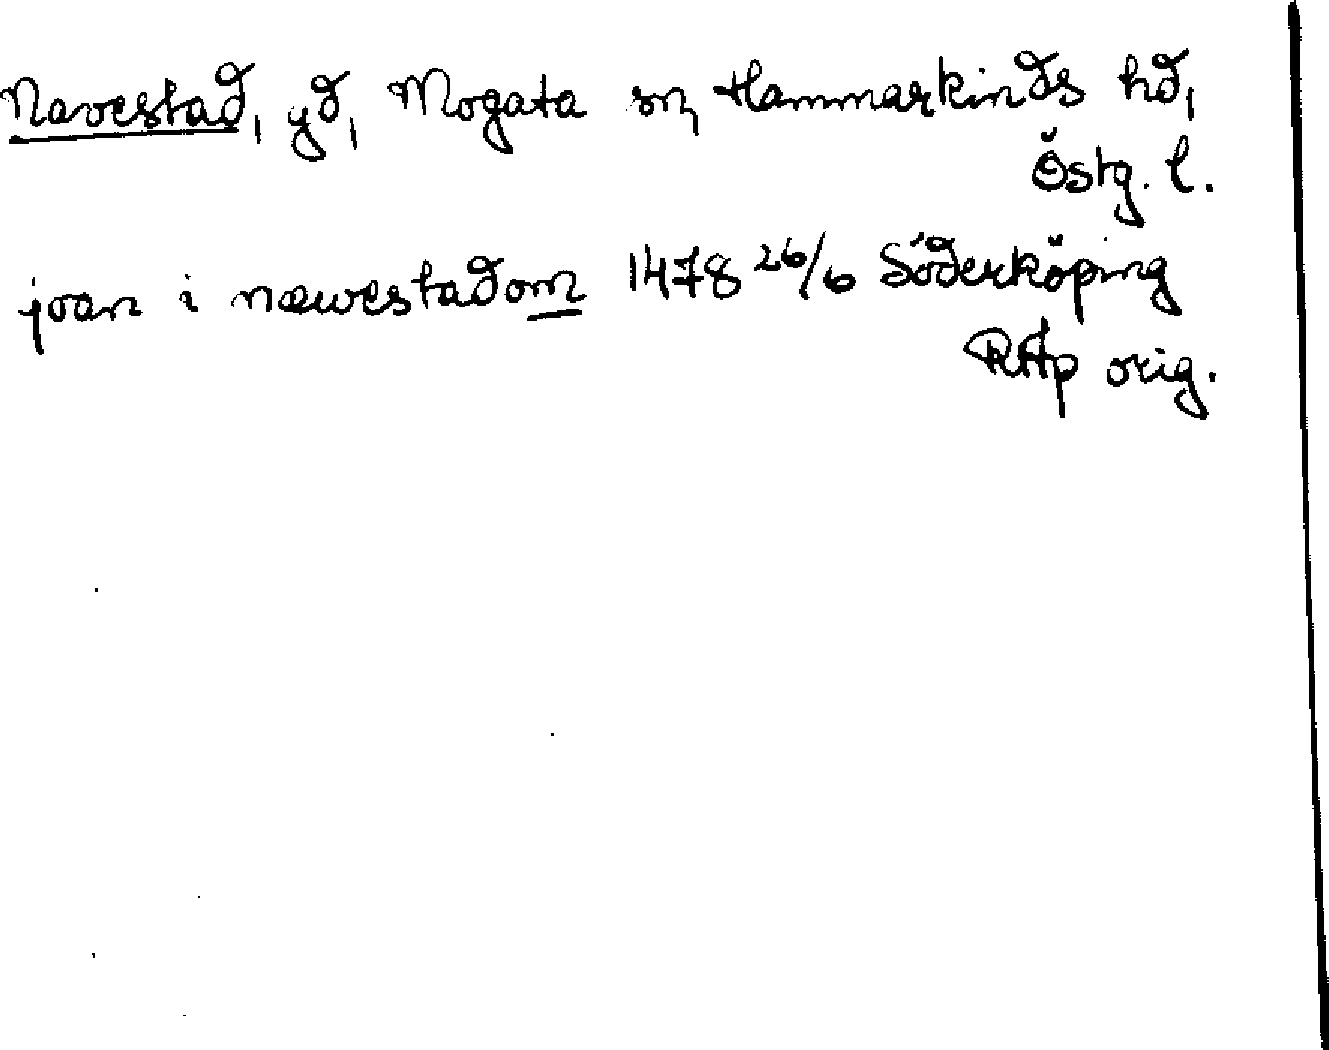 Navestad, gd, Mogata sn, Hammarkinds hd,
Östg. l.
joan i nawestadom 1478 26/6 Söderköping
RAp orig.